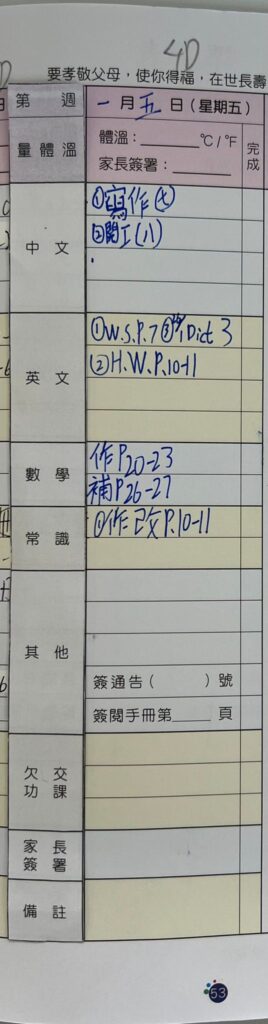 4D
要孝敬父母，使你得福，在世長壽
第 週 一月五日（星期五）
量體溫 體溫：______ °C / °F 完成
家長簽署：______
中文 ①寫作(七)
②閱工(八)
英文 ①W.S.P.7 ③ Dict 3
②H.W.P.10-11
數學 作P20-23
補P26-27
常識 ①作改P.10-11
其他
簽通告（ ）號
簽閱手冊第____頁
欠交功課
家長簽署
備註
53